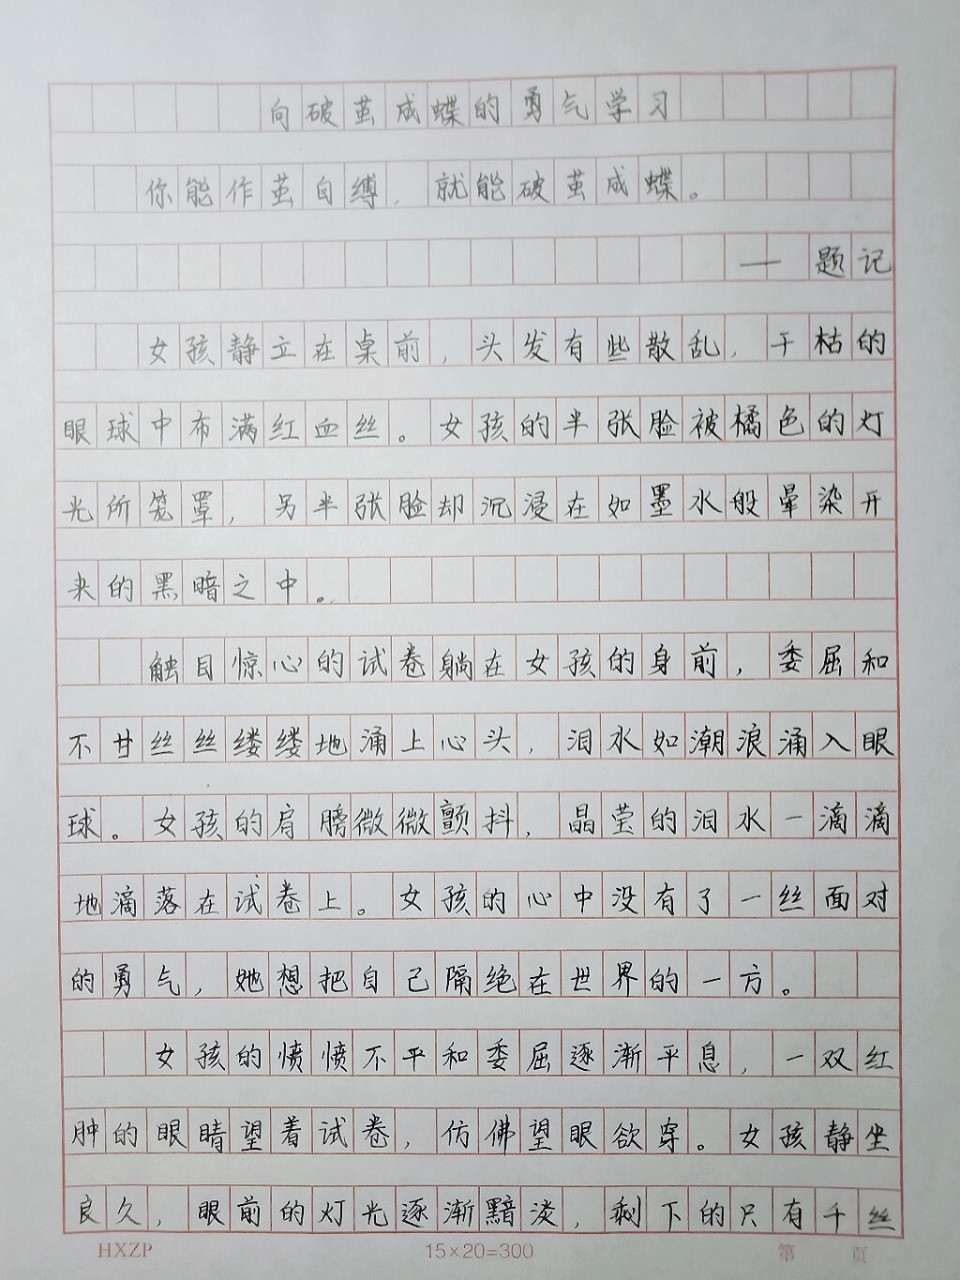 向破茧成蝶的勇气学习
你能作茧自缚，就能破茧成蝶。
——题记
女孩静立在桌前，头发有些散乱，干枯的
眼球中布满红血丝。女孩的半张脸被橘色的灯
光所笼罩，另半张脸却沉浸在如墨水般晕染开
来的黑暗之中。
触目惊心的试卷躺在女孩的身前，委屈和
不甘丝丝缕缕地涌上心头，泪水如潮浪涌入眼
球。女孩的肩膀微微颤抖，晶莹的泪水一滴滴
地滴落在试卷上。女孩的心中没有了一丝面对
的勇气，她想把自己隔绝在世界的一方。
女孩的愤愤不平和委屈逐渐平息，一双红
肿的眼睛望着试卷，仿佛望眼欲穿。女孩静坐
良久，眼前的灯光逐渐黯淡，剩下的只有千丝
HXZP 15×20=300 第 页